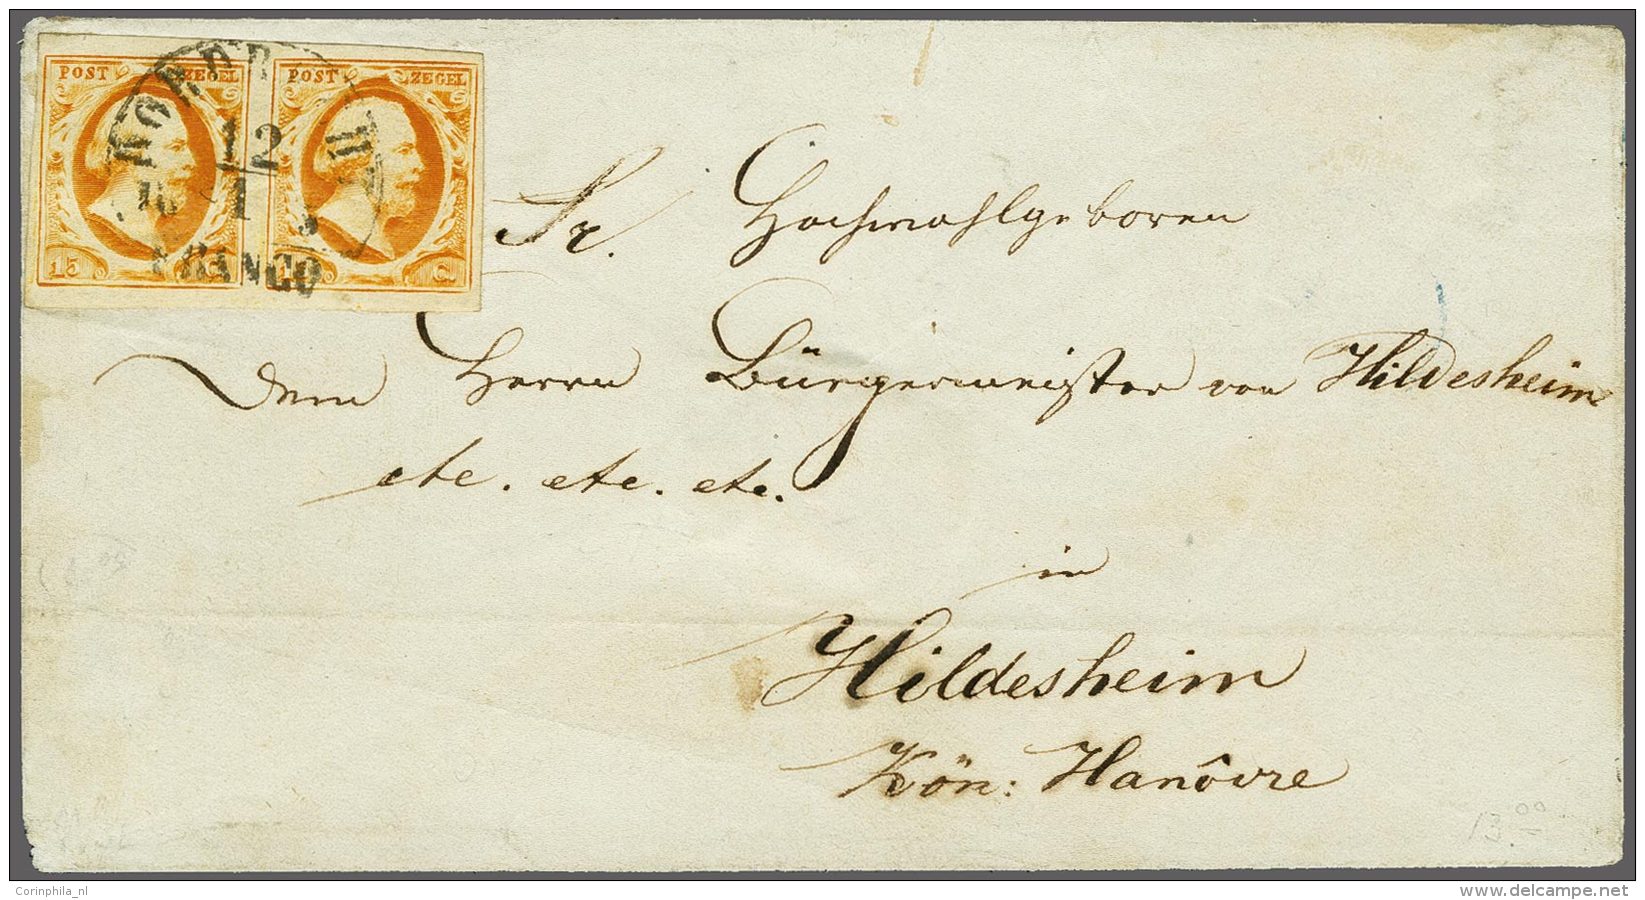 POST ZEGEL POST ZEGEL
12
1
15 C
FRANCO
Sr. Hochwohlgeboren
Dem Herrn Bürgermeister von Hildesheim
etc. etc. etc.
in
Hildesheim
Kön: Hanôvre
13.00
Corinphila_nl
www.delcampe.net